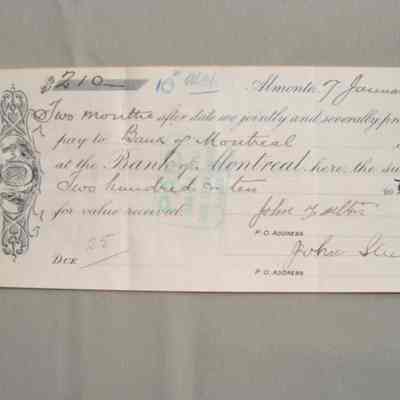 $210 10 Mar Almonte, 7 Janua
Two months after date we jointly and severally pro
pay to Bank of Montreal
at the Bank of Montreal, here, the su
Two hundred & ten
for value received. John
P.O. ADDRESS
DUE 25 John
P.O. ADDRESS